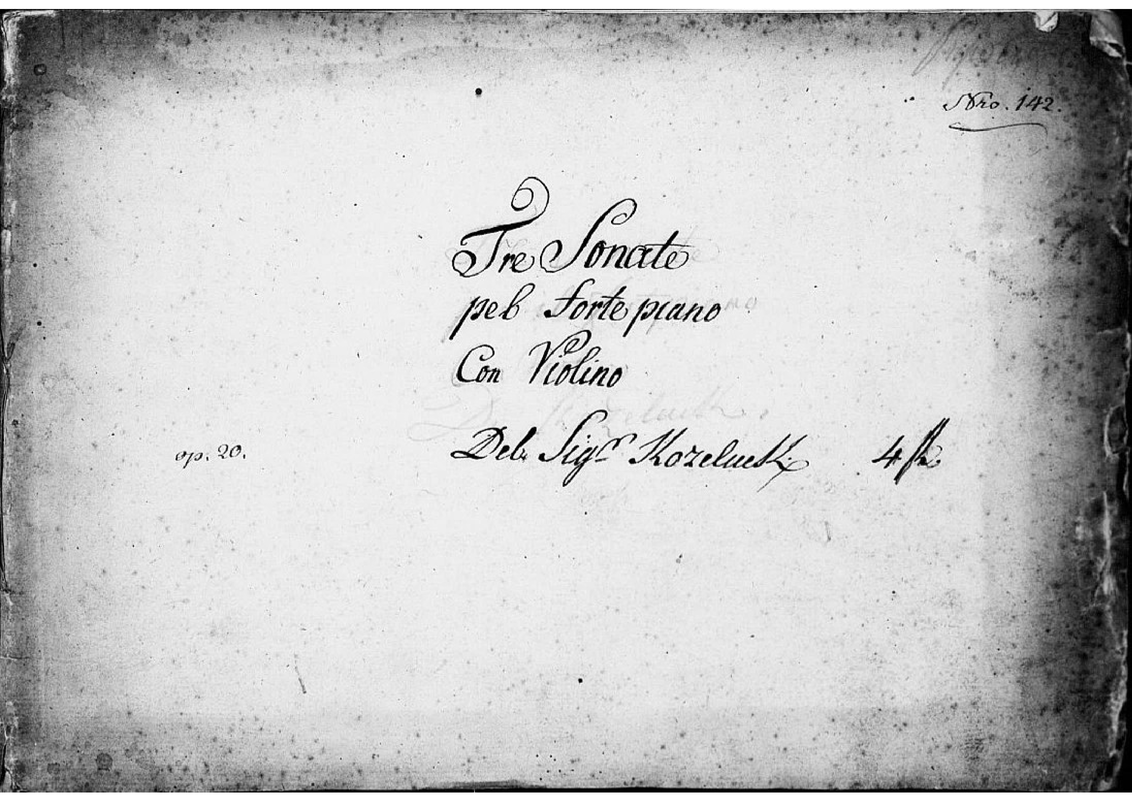 Nro. 142.
Tre Sonate
pel Forte piano
Con Violino
op. 20.
Del Sigr Kozeluck